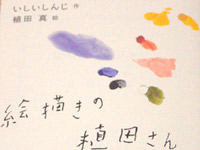 いしいしんじ 作
植田 真 絵
絵描きの
植田さん